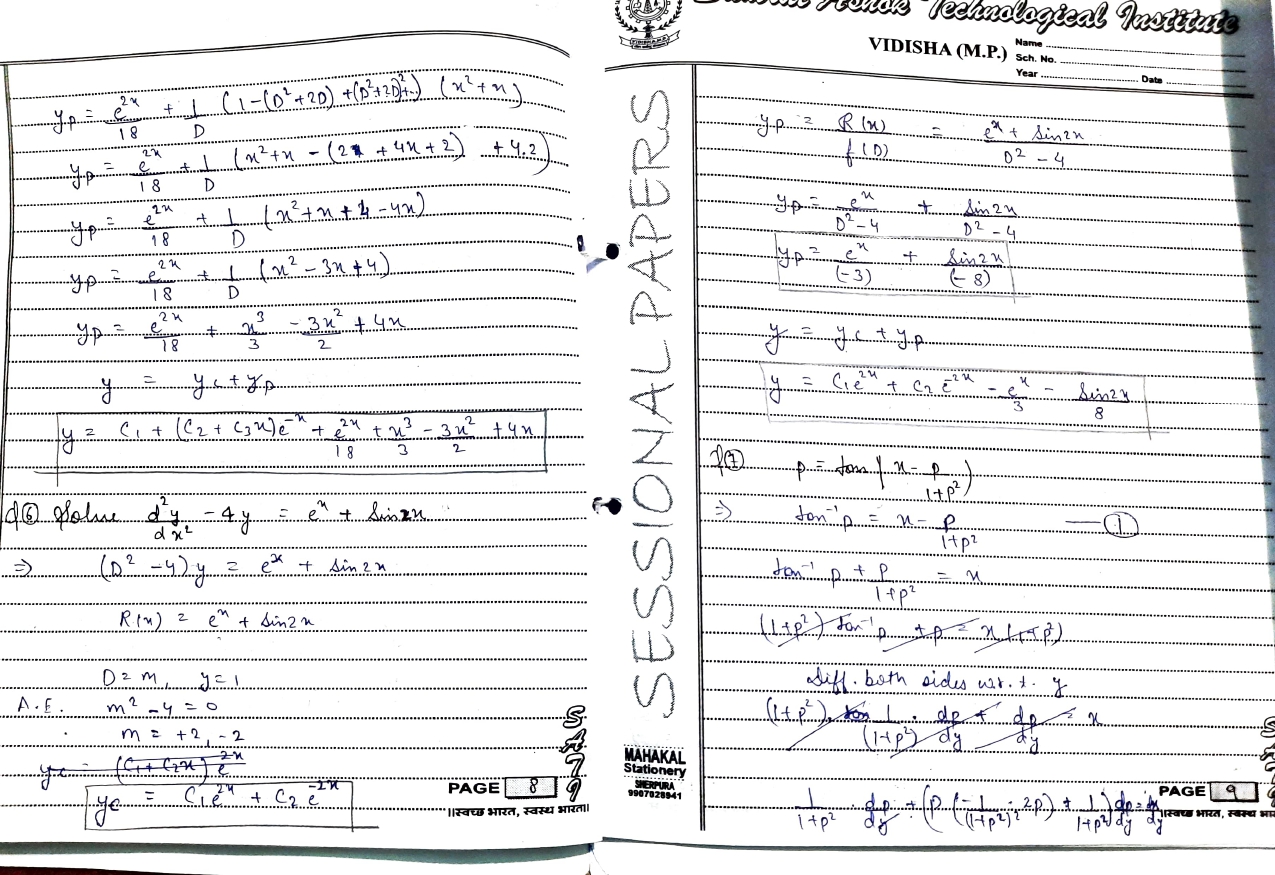 yp = e^2x/18 + 1/D (1-(D²+2D)+(D²+2D)²+..) (x²+x)
yp = e^2x/18 + 1/D (x²+x - (2x + 4x + 2) + 4.2)
yp = e^2x/18 + 1/D (x²+x+4-4x)
yp = e^2x/18 + 1/D (x² - 3x + 4)
yp = e^2x/18 + x³/3 - 3x²/2 + 4x
y = yc + yp
y = C1 + (C2 + C3x)e^-x + e^2x/18 + x³/3 - 3x²/2 + 4x
Q⑥ Solve d²y/dx² - 4y = e^x + Sin2x
⇒ (D² - 4)y = e^x + sin2x
R(x) = e^x + sin2x
D = m, y = 1
A.E. m² - 4 = 0
m = +2, -2
yc = (C1 + C2x) e^2x
yc = C1e^2x + C2e^-2x
PAGE 8
॥स्वच्छ भारत, स्वस्थ भारत॥
SATI
SESSIONAL PAPERS
MAHAKAL
Stationery
SHERPURA
9907028941
Ashok Technological Institute
VIDISHA (M.P.)
Name
Sch. No.
Year Date
yp = R(x)/f(D) = e^x + Sin2x/D² - 4
yp = e^x/D²-4 + Sin2x/D²-4
yp = e^x/(-3) + Sin2x/(-8)
y = yc + yp
y = C1e^2x + C2e^-2x - e^x/3 - Sin2x/8
Q⑦ p = tan(x - p/1+p²)
⇒ tan⁻¹p = x - p/1+p² —①
tan⁻¹p + p/1+p² = x
(1+p²) tan⁻¹p + p = x(1+p²)
Diff. both sides w.r.t. y
(1+p²). tan 1/(1+p²) . dp/dy + dp/dy = x
1/1+p² . dp/dy + (p (-1/(1+p²)² . 2p) + 1/1+p²) dp/dy = dx/dy
PAGE 9
॥स्वच्छ भारत, स्वस्थ